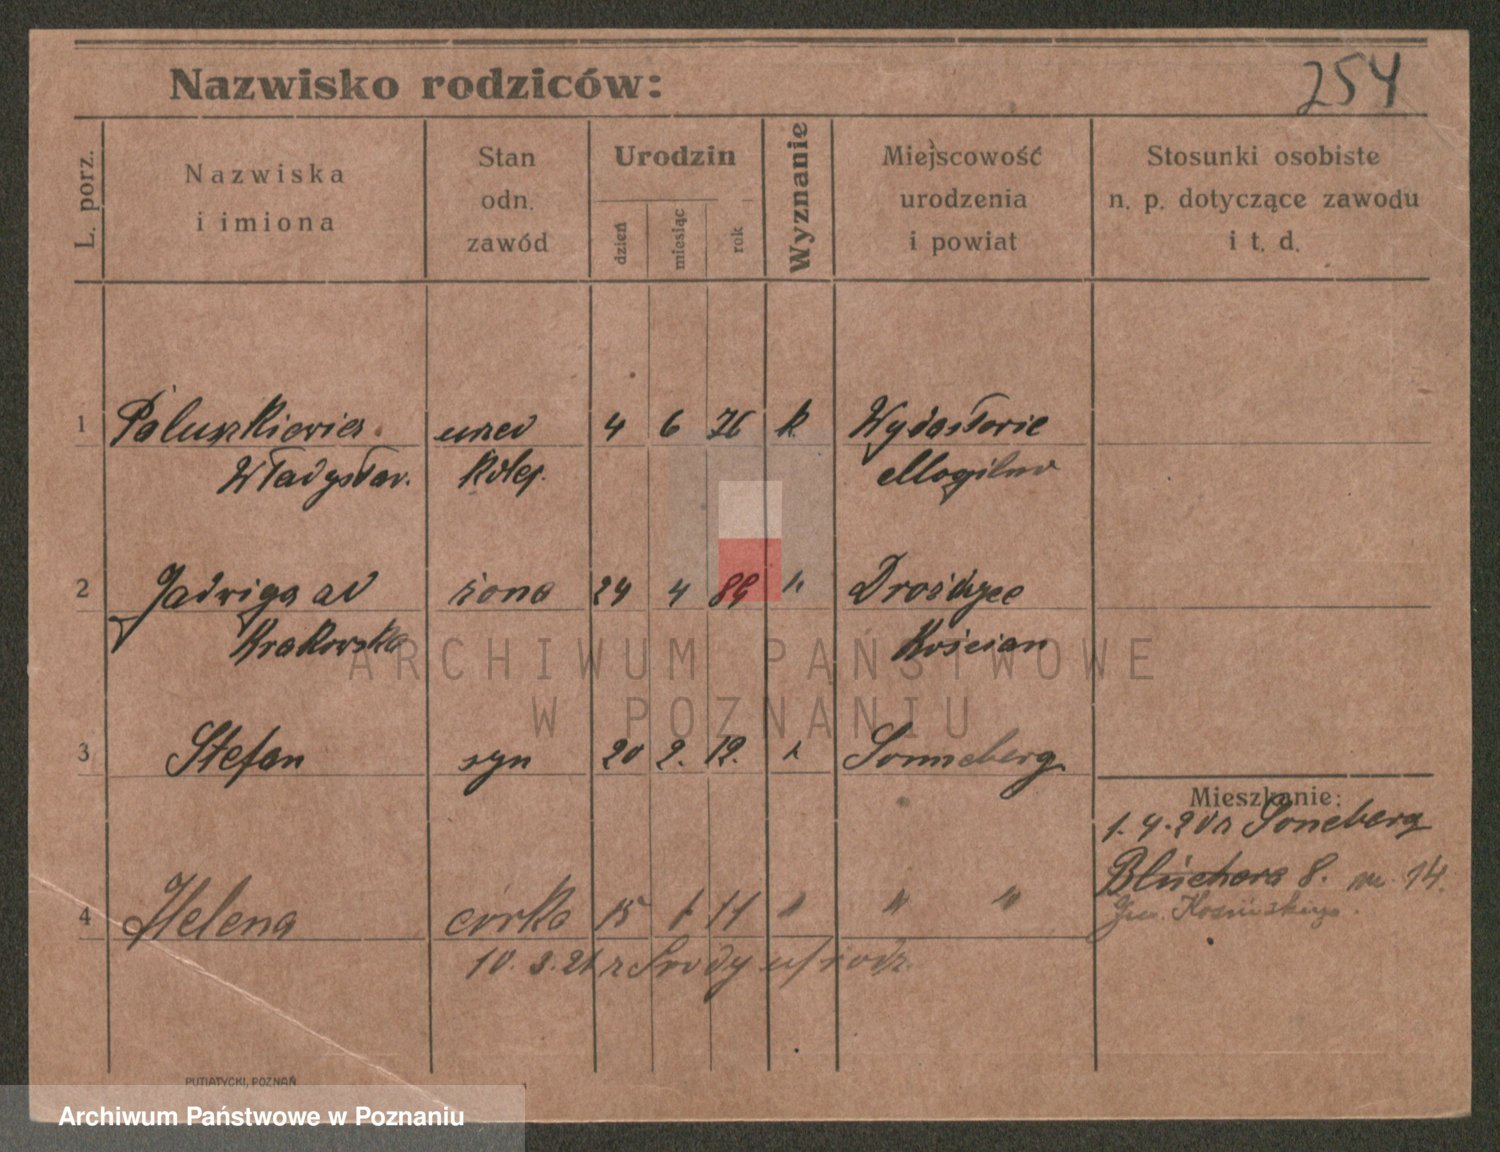 254
Nazwisko rodziców:
L. porz.
Nazwiska
i imiona
Stan
odn.
zawód
Urodzin
dzień
miesiąc
rok
Wyznanie
Miejscowość
urodzenia
i powiat
Stosunki osobiste
n. p. dotyczące zawodu
i t. d.
1 Paluszkiewicz 4 6 76 k.
Władysław. Kolej. Mogilno
2 Jadwiga od żona 24 4 k
Krakowska Kościan
3 Stefan syn 20 2. 12. k Sonneberg
Mieszkanie:
1. 4. 20 z Soneberg
Blüchera 8. m. 14.
4 Helena córka 15 1 14 " " "
10. 3. 21 z Środy u/rodz.
PUTIATYCKI, POZNAŃ
ARCHIWUM PAŃSTWOWE
W POZNANIU
Archiwum Państwowe w Poznaniu